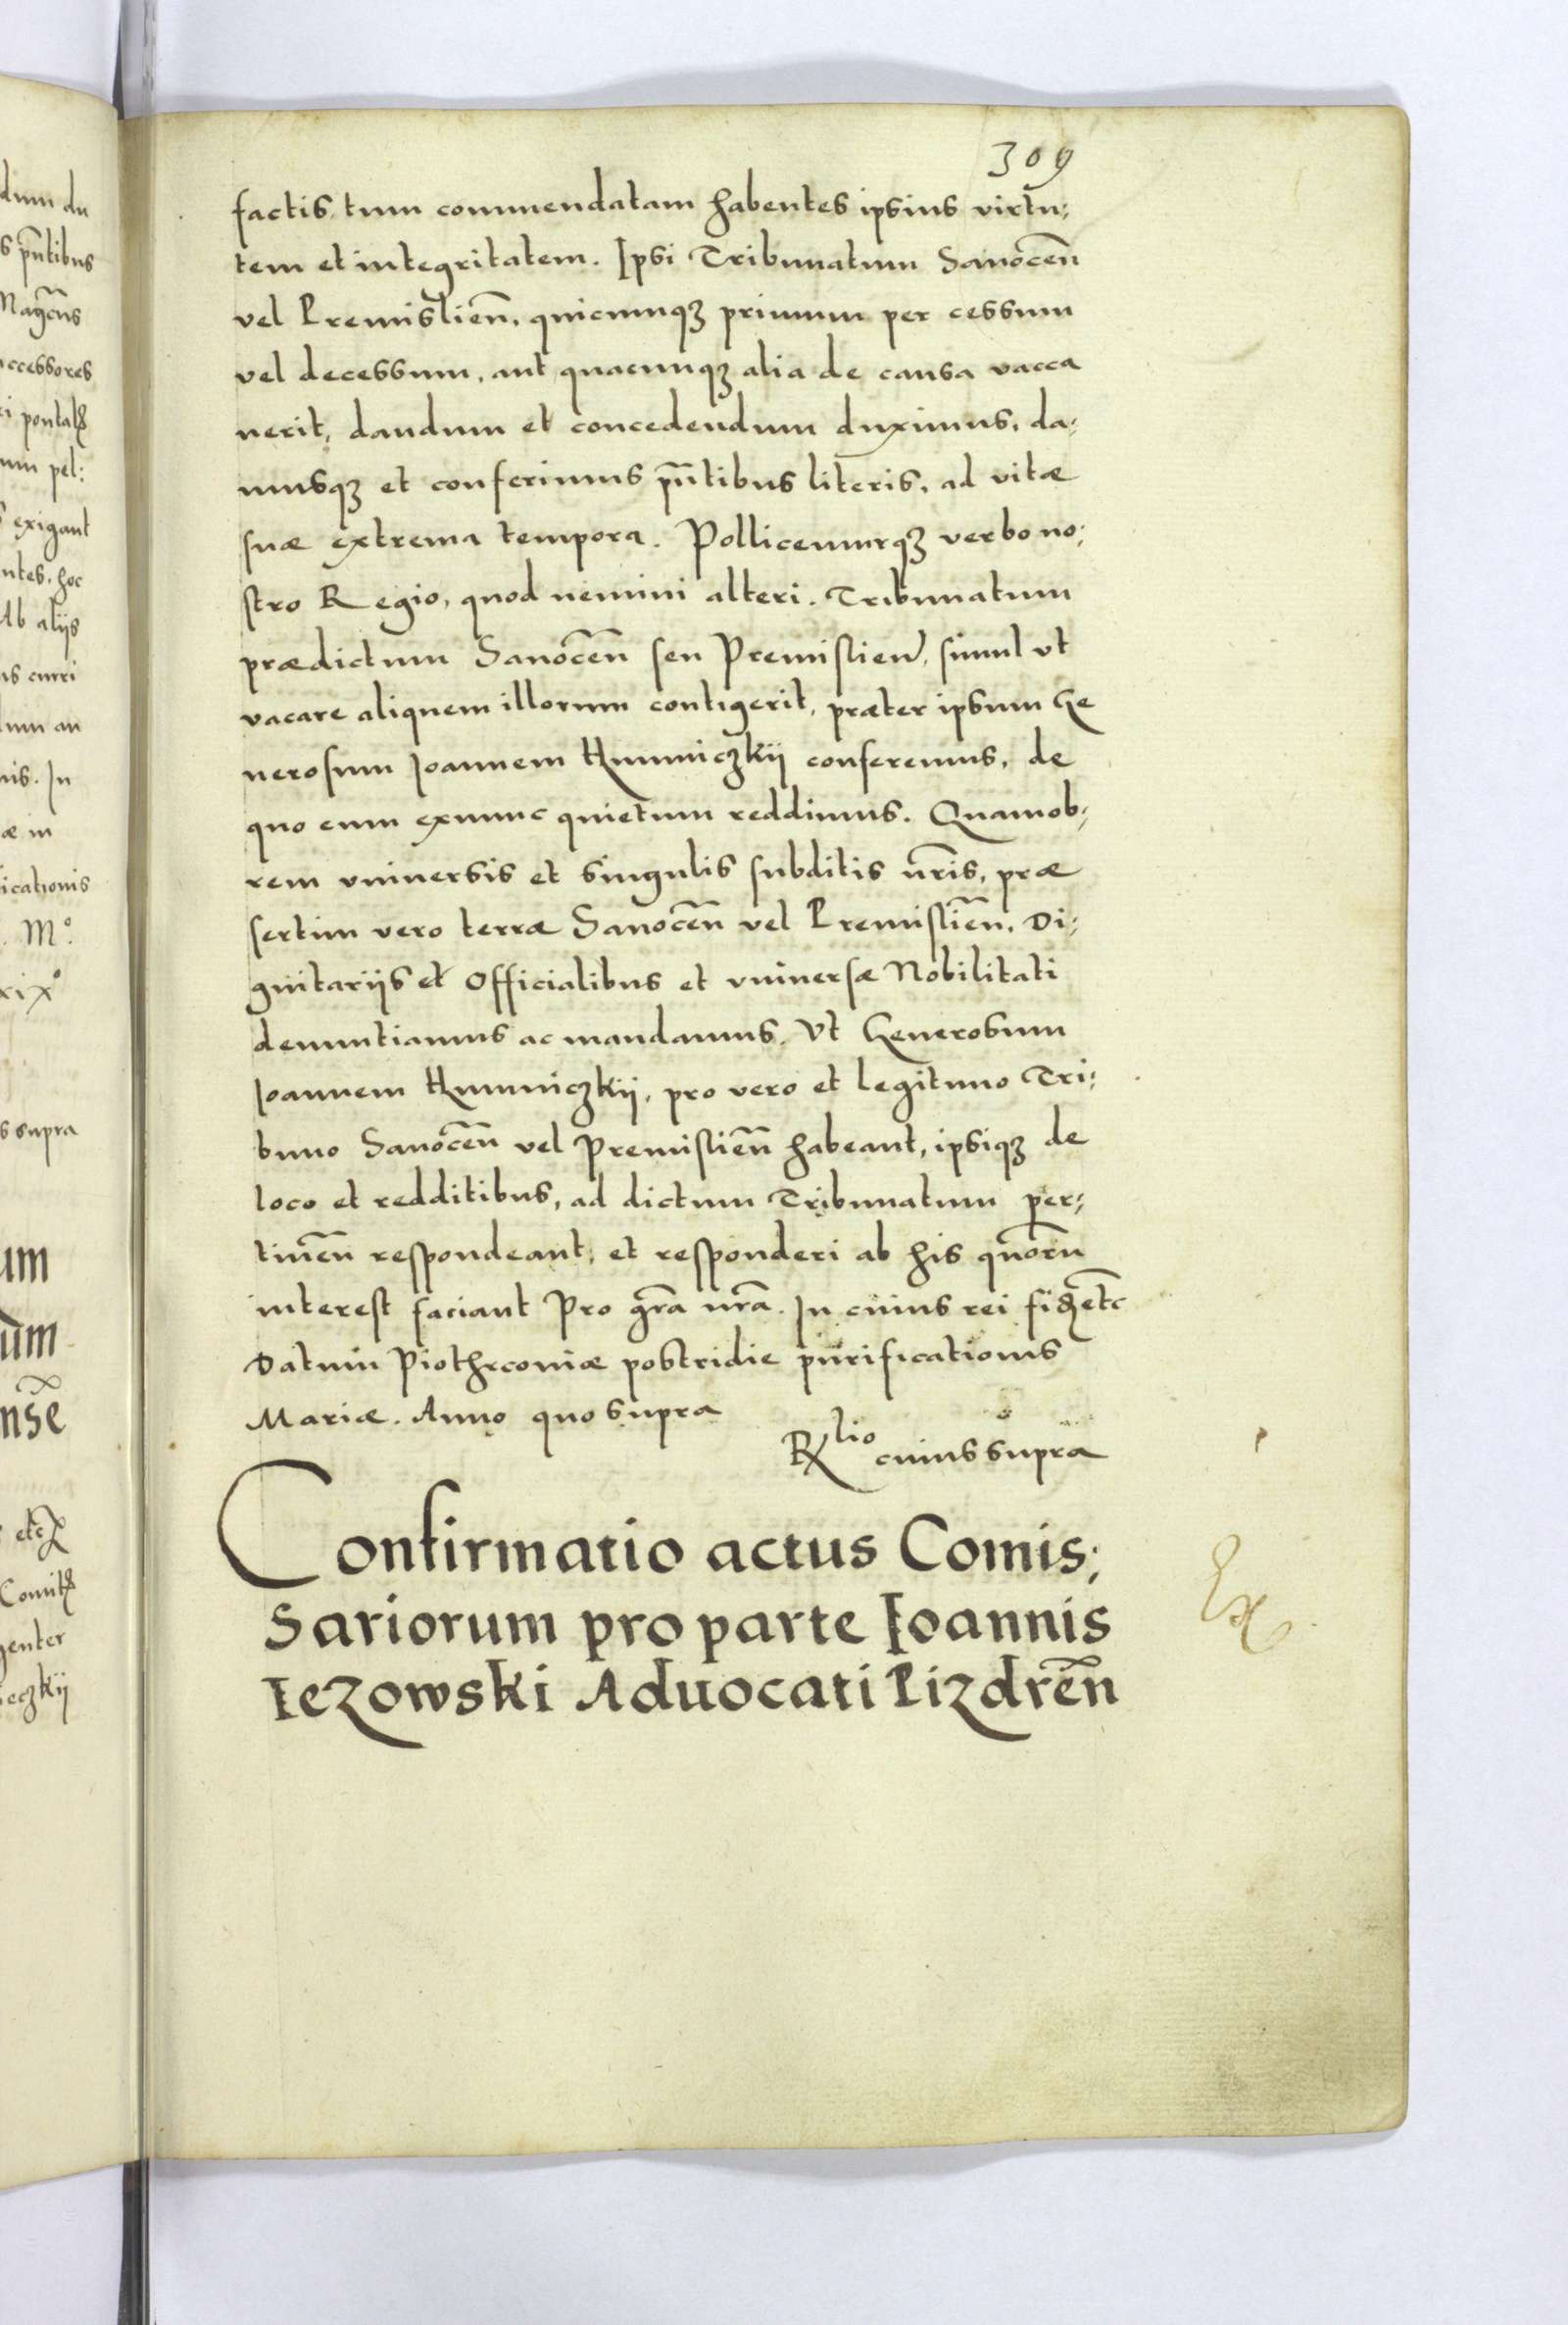 309
factis, tum commendatam habentes ipsius virtu:
tem et integritatem. Ipsi Tribunatum Sanoceñ
vel Premislieñ, quicunqȝ primum per cessum
vel decessum, aut quacunqȝ alia de causa vacca
uerit, dandum et concedendum duximus, da:
musqȝ et conferimus pñtibus literis, ad vitæ
suæ extrema tempora. Pollicemurqȝ verbo no:
stro Regio, quod nemini alteri. Tribunatum
prædictum Sanoceñ seu Premislien̄, simul vt
vacare aliquem illorum contigerit, præter ipsum Ge
nerosum Joannem Humniczkij conferemus, de
quo eum exnunc quietum reddimus. Quamob:
rem vniuersis et singulis subditis nr̃is, præ
sertim vero terræ Sanoceñ vel Premislieñ, Di:
gnitariis et Officialibus et vniuersæ Nobilitati
denuntiamus ac mandamus. Vt Generosum
Joannem Humniczkij, pro vero et legitimo Tri:
buno Sanoceñ vel Premislieñ habeant, ipsiqȝ de
loco et redditibus, ad dictum Tribunatum per:
tineñ respondeant, et responderi ab his quorũ
interest faciant Pro gr̃a nr̃a. In cuius rei fiđ etc̃
Datum Piothrconiæ postridie purificationis
Mariæ. Anno quo supra
Rlio cuius supra
Confirmatio actus Comis:
Sariorum pro parte Ioannis
Iezowski Aduocati Pizdreñ
Ex
dum du
s pñtibus
Magc̃us
ccessores
um pel:
exigant
ntes, hoc
Ab aliis
us curri
um an
nis. In
æ in
icationis
M°.
xix°
s supra
um
um
nsẽ
etc
enter
eczkij